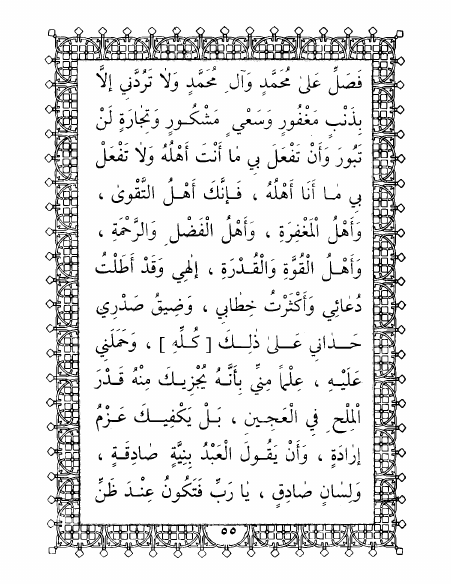 فَصَلِّ عَلىٰ مُحَمَّدٍ وَآلِ مُحَمَّدٍ وَلاٰ تَرُدَّني إلاَّ
بِذَنْبٍ مَغْفُورٍ وَسَعْيٍ مَشْكُورٍ وَتِجٰارَةٍ لَنْ
تَبُورَ وَأَنْ تَفْعَلَ بي مٰا أَنْتَ أَهْلُهُ وَلاٰ تَفْعَلْ
بي مٰا أَنَا أَهْلُهُ ، فَإنَّكَ أَهْلُ التَّقْوىٰ ،
وَأَهْلُ الْمَغْفِرَةِ ، وَأَهْلُ الْفَضْلِ وَالرَّحْمَةِ ،
وَأَهْلُ الْقُوَّةِ وَالْقُدْرَةِ ، إلٰهي وَقَدْ أَطَلْتُ
دُعٰائي وَأَكْثَرْتُ خِطٰابي ، وَضِيقُ صَدْرِي
حَدٰاني عَلىٰ ذٰلِكَ [ كُلِّهِ ] ، وَحَمَلَني
عَلَيْهِ ، عِلْماً مِنّي بِأَنَّهُ يُجْزِيكَ مِنْهُ قَدْرَ
الْمِلْحِ في الْعَجِينِ ، بَلْ يَكْفِيكَ عَزْمُ
إرٰادَةٍ ، وَأَنْ يَقُولَ الْعَبْدُ بِنِيَّةٍ صٰادِقَةٍ ،
وَلِسٰانٍ صٰادِقٍ ، يٰا رَبِّ فَتَكُونُ عِنْدَ ظَنِّ
٥٥